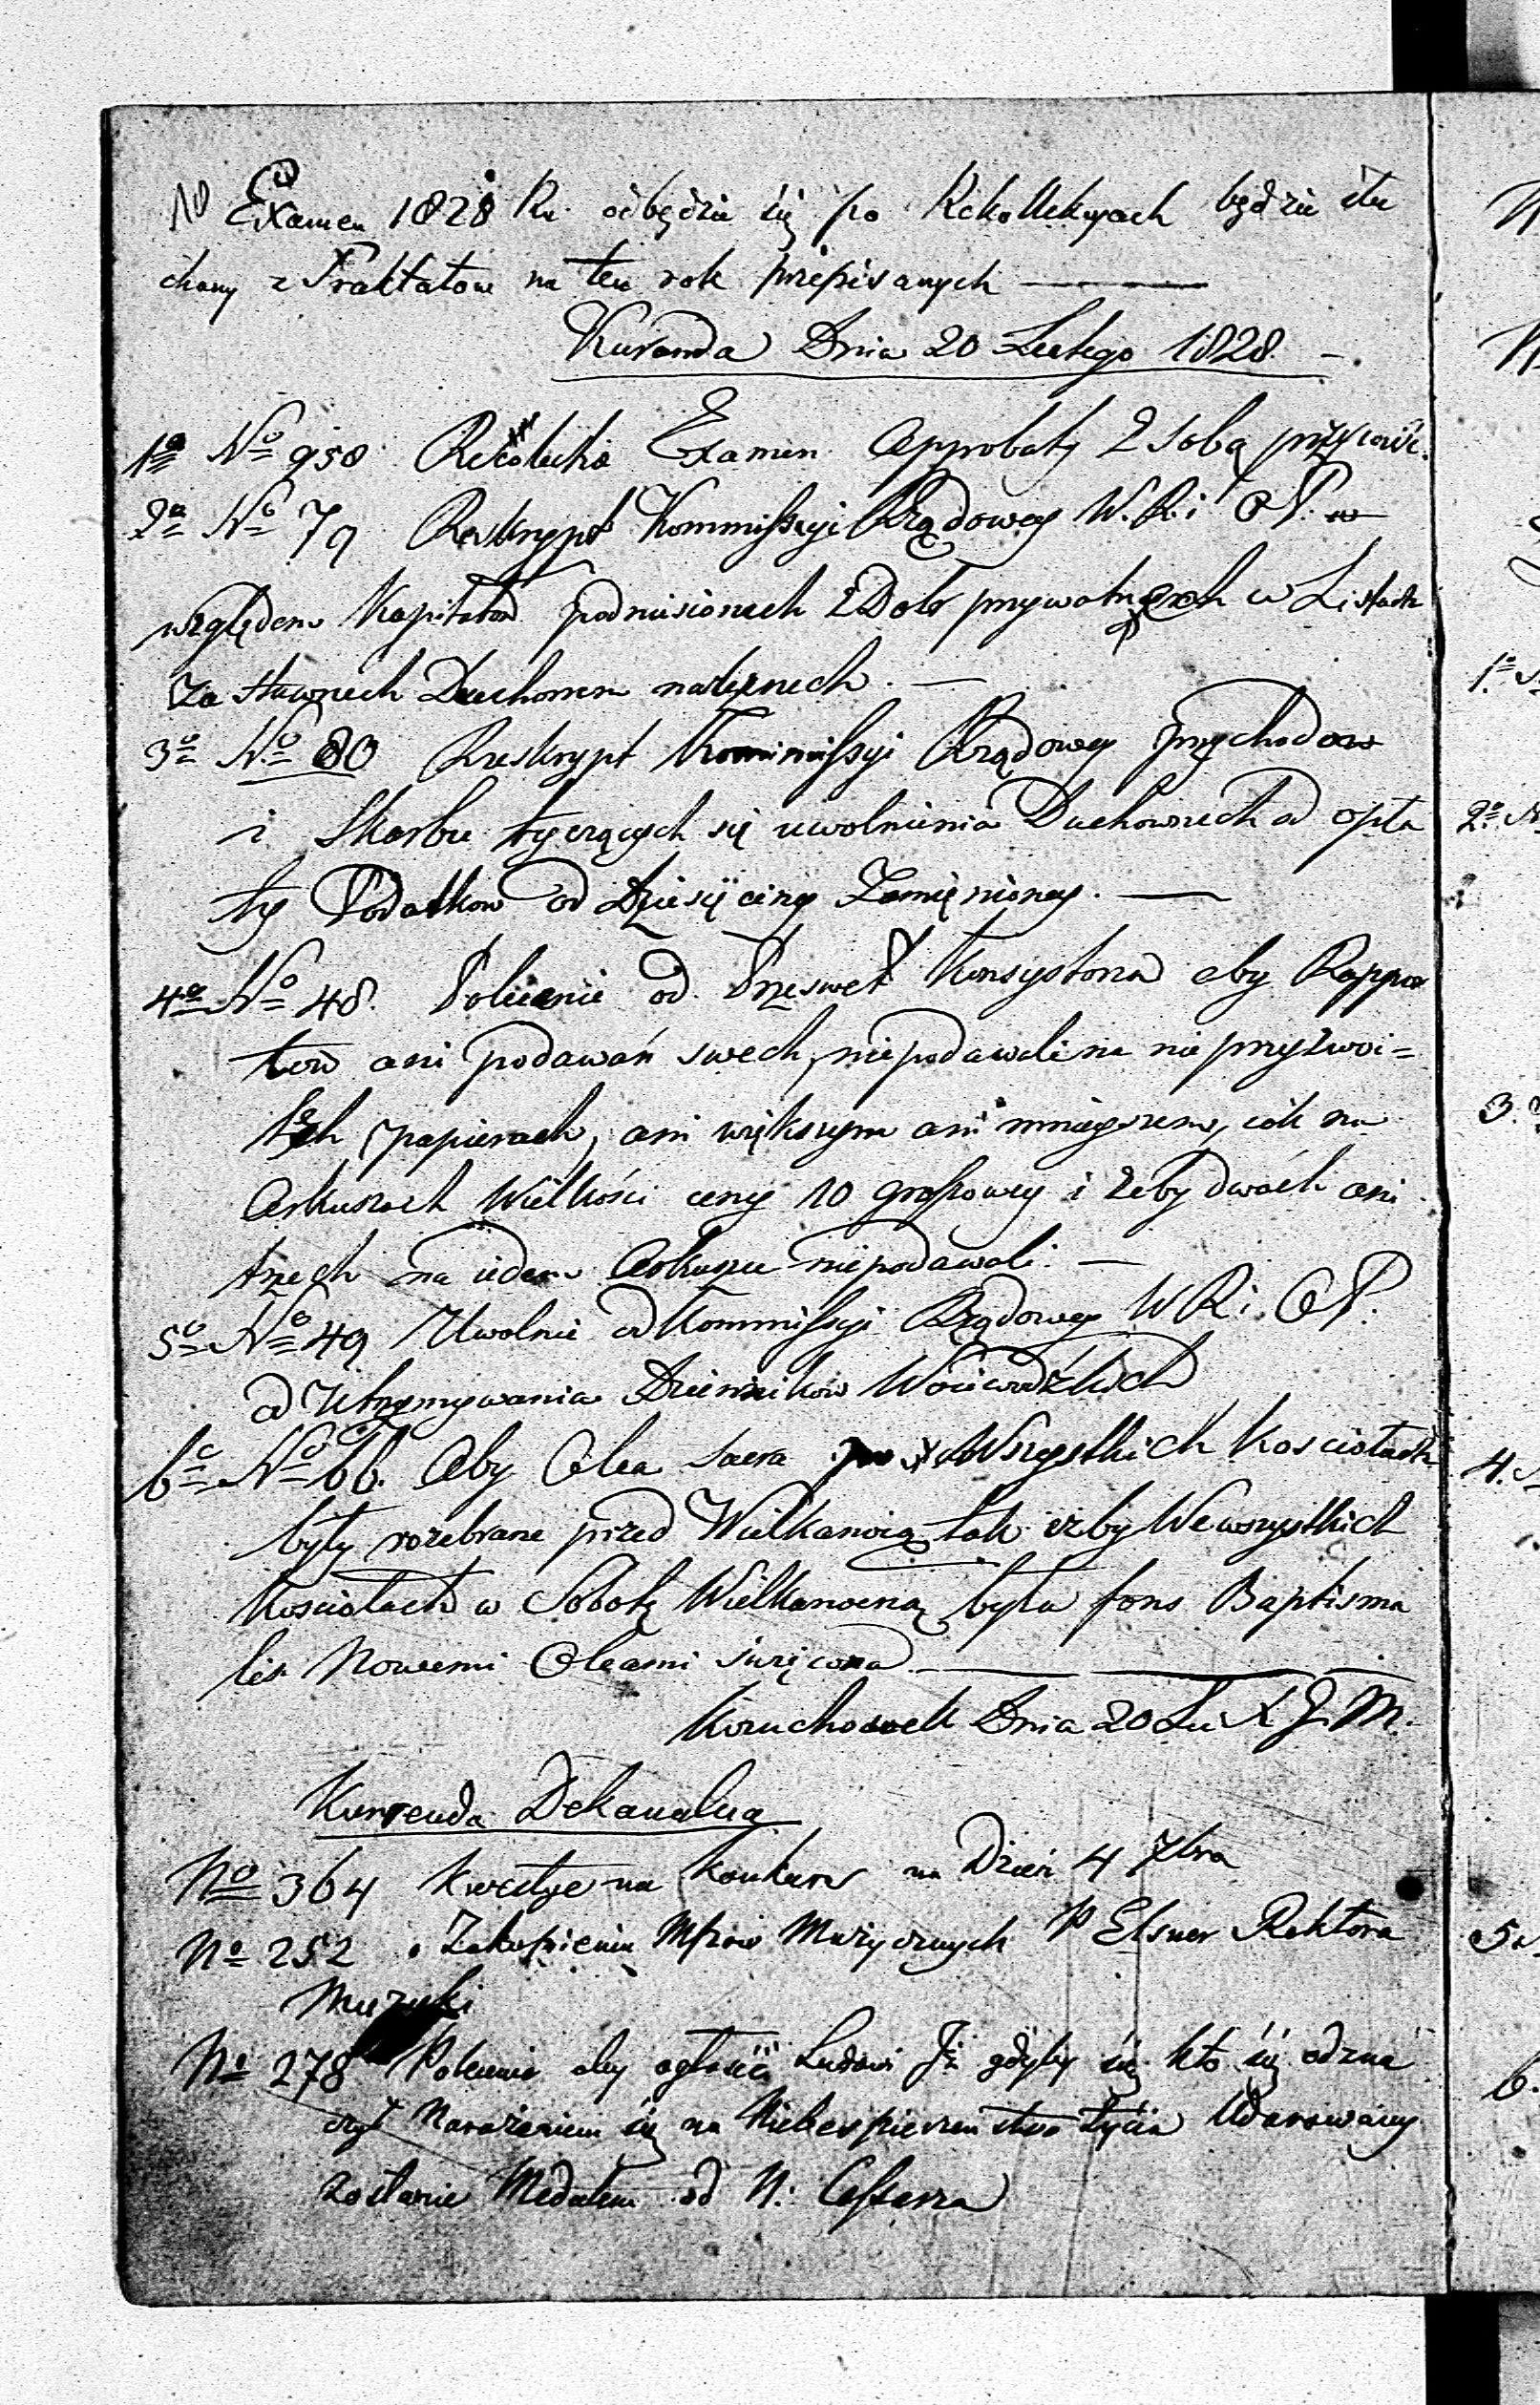 10 Examen 1828 Ru. odbędzie się po Rekollekcyach będzie słu
chany z Traktatow na ten rok przepisanych
Kuranda Dnia 20 Lutego 1828.
1o No 958 Examen Approbaty z sobą
2o No 79 Reskrypt Kommissyi Rządowey W. R. i O P.
względem Kapitałow podniesionech z Dobr prywatnech w Listach
Zastawnech Duchownem należnech.
3o No 80 Rreskrypt Kommissyi Rządowey Przychodow
i Skarbu tyczących się uwolnienia Duchownech od opła
ty Podatkow od Dziesięciny Zamięnioney.
4o No 48. Polecenie od Prześwet Konsystorza aby Rappor
tow ani podawań swech, niepodawali na nieprzyzwoi=
tech papierach, ani większym ani mnieyszem, iak na
Arkuszach Wielkości ceny 10 groszowey i żeby dwóch ani
trzech na iedem Arkuszu niepodawali.
5o No 49 Uwolnie od Kommissyi Rządowey W R i. O P.
od Utrzymywania Dzienników Woiewodźkich
6o No 66. Aby Olea sacra Wszystkich Kosciołach
były rozebrane przed Wielkanocą tak iżby We wszystkich
Kosciołach w Sobotę Wielkanocną była fons Baptisma
lis Nowemi Oleami święcona.
Dnia 20 Lu X J. M.
Kurrenda Dekanalna
No 364 Kwestye na Konkurs na Dzień 4 7bra
No 252 o Zakupieniu Mszow Muzycznych P Elsner Rektora
Muzyki
No 278 Polecenie aby ogłosić Ludowi Iż gdyby się kto się odzna
czył Narażeniem się na Niebespieczenstwo życia Udarowany
zostanie Medalem od N: Cessarza